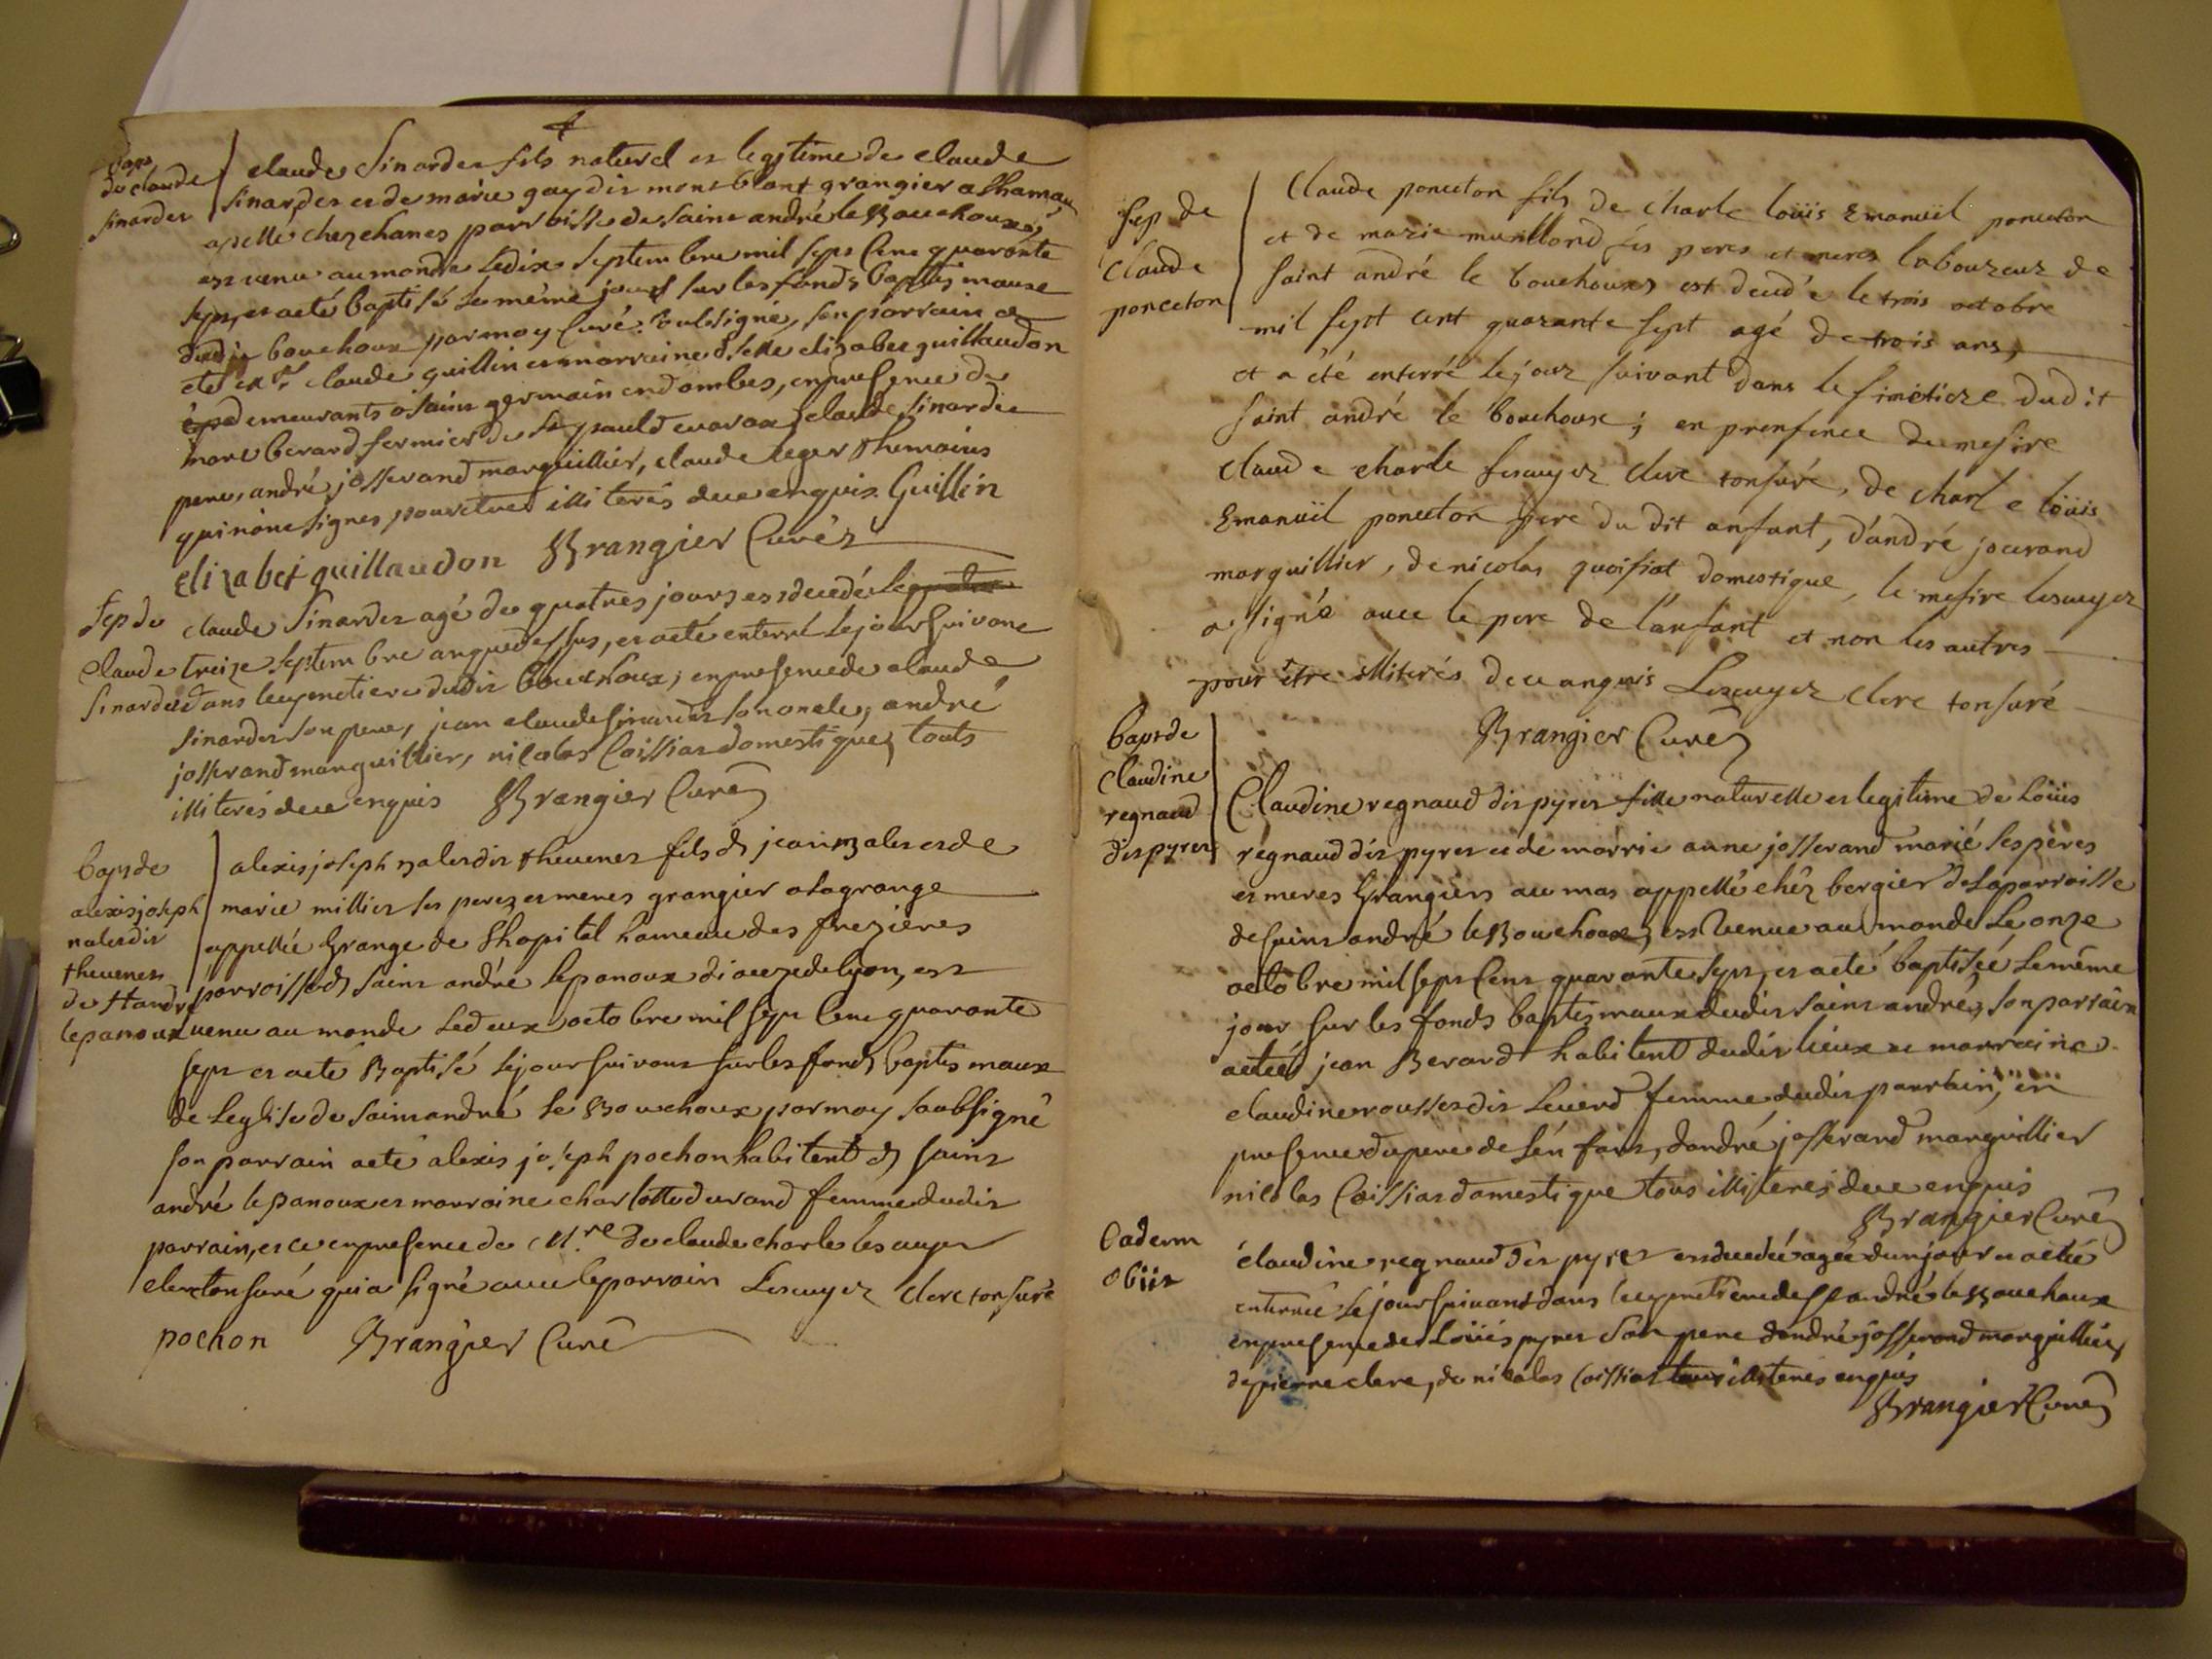 4
bap
de claude
sinardet
claude Sinardet fils naturel et legitime de claude
sinardet et de marie gay dit mont blant grangier a lhamau
apellé chez chanes parroisse de saint andré le Bouchoux,
est venu au monde ledix septembre mil sept cent quarante
sept, et a eté baptisé le même jour sur les fonds baptis maux
dudit bouchoux par moy Curé soubsigné, son parrain a
eté claude guillin et marraine dselle elizabet guillaudon
demeurants a saint germain en dombes, en presence de
marc berard fermier de paul d'evarax, claude sinardet
pere, andré josserand marguillier, claude leger themoins
qui n'ont signes pour etre illiterés deue enquis. Guillin
elizabet guillaudon Brangier Curéz
Sep de
Claude
Sinardet
claude Sinardet agé de quatres jours est decedé le
treize septembre an que dessus, et a eté enterré le jour suivant
dans le cymetiere dudit bouchoux; en presence de claude
sinardet son pere, jean claude sinardet son oncle, andré
josserand marguillier, nicolas Coissiat domestique, touts
illiterés deue enquis Brangier Curé
bapt de
alexis joseph
nalet dit
thevenet
de st andré
le panoux
alexis joseph nalet dit thevenet fils de jean nalet et de
marie millier ses perez et meres grangier a la grange
appellée Grange de Lhopital hameau des frezieres
parroisse de saint andré le panoux diocezedelyon, est
venu au monde le deux octobre mil sept cent quarante
sept et a eté Baptisé le jour suivant sur les fonds baptis maux
de Leglise de saint andré le Bouchoux par moy soubsigné
son parrain a eté alexis joseph pochon habitent de saint
andré le panoux et marraine charlotte durand femme dudit
parrain, et ce en presence de M.re de claude charle lescuyer
clerc tonsuré qui a signé avec le parrain Lescuyer clerc tonsuré
pochon Brangier Curé
Sep de
Claude
ponceton
Claude ponceton fils de charle loüis Emanuël ponceton
et de marie muillond ses peres et meres laboureur de
saint andré le bouchoux est decedé le trois octobre
mil sept cent quarante sept agé de trois ans,
et a été enterré le jour suivant dans le simetiere dudit
saint andré le bouchoux; en prensence de mesire
claude charle lescuyer clerc tonsuré, de charle loüis
Emanuël ponceton pere du dit anfant, d'andré jouvrand
marguillier, de nicolas quoisiat domestique, le mesire lescuyer
a signé avec le pere de l'anfant et non les autres
pour être illiterés deue anquis Lescuyer clerc tonsuré
Brangier Curé
bapt de
Claudine
regnaud
dit pyret
Claudine regnaud dit pyret fille naturelle et legitime de Loüis
regnaud dit pyret et de marrie anne josserand marié ses pères
et meres Grangiers au mas appellé chêz bergier de la parroisse
de saint andré le Bouchoux, est venue au monde Le onze
octobre mil sept cent quarante sept, et a eté baptisée le même
jour sur les fonds baptismaux dudit saint andré, son parrain
a eté jean Berard habitent dudit lieux et marraine
claudine rousset dit Leverd femme dudit parrain, en
presence du pere de Lén fant, dandré josserand marguillier
nicolas Coissiat domestique tous illiterés deue enquis
Brangier Curé
Eadem
obiit
claudine regnaud dit pyret est decedée agée d'un jour et a eté
enterrée le jour suivant dans le cymetiere de st andré le Bouchoux
en presence de Loüis pyret son pere dandré josserand marguillier,
de pierre clerc, de nicolas Coissiat tous illiterés enquis
Brangier Curé